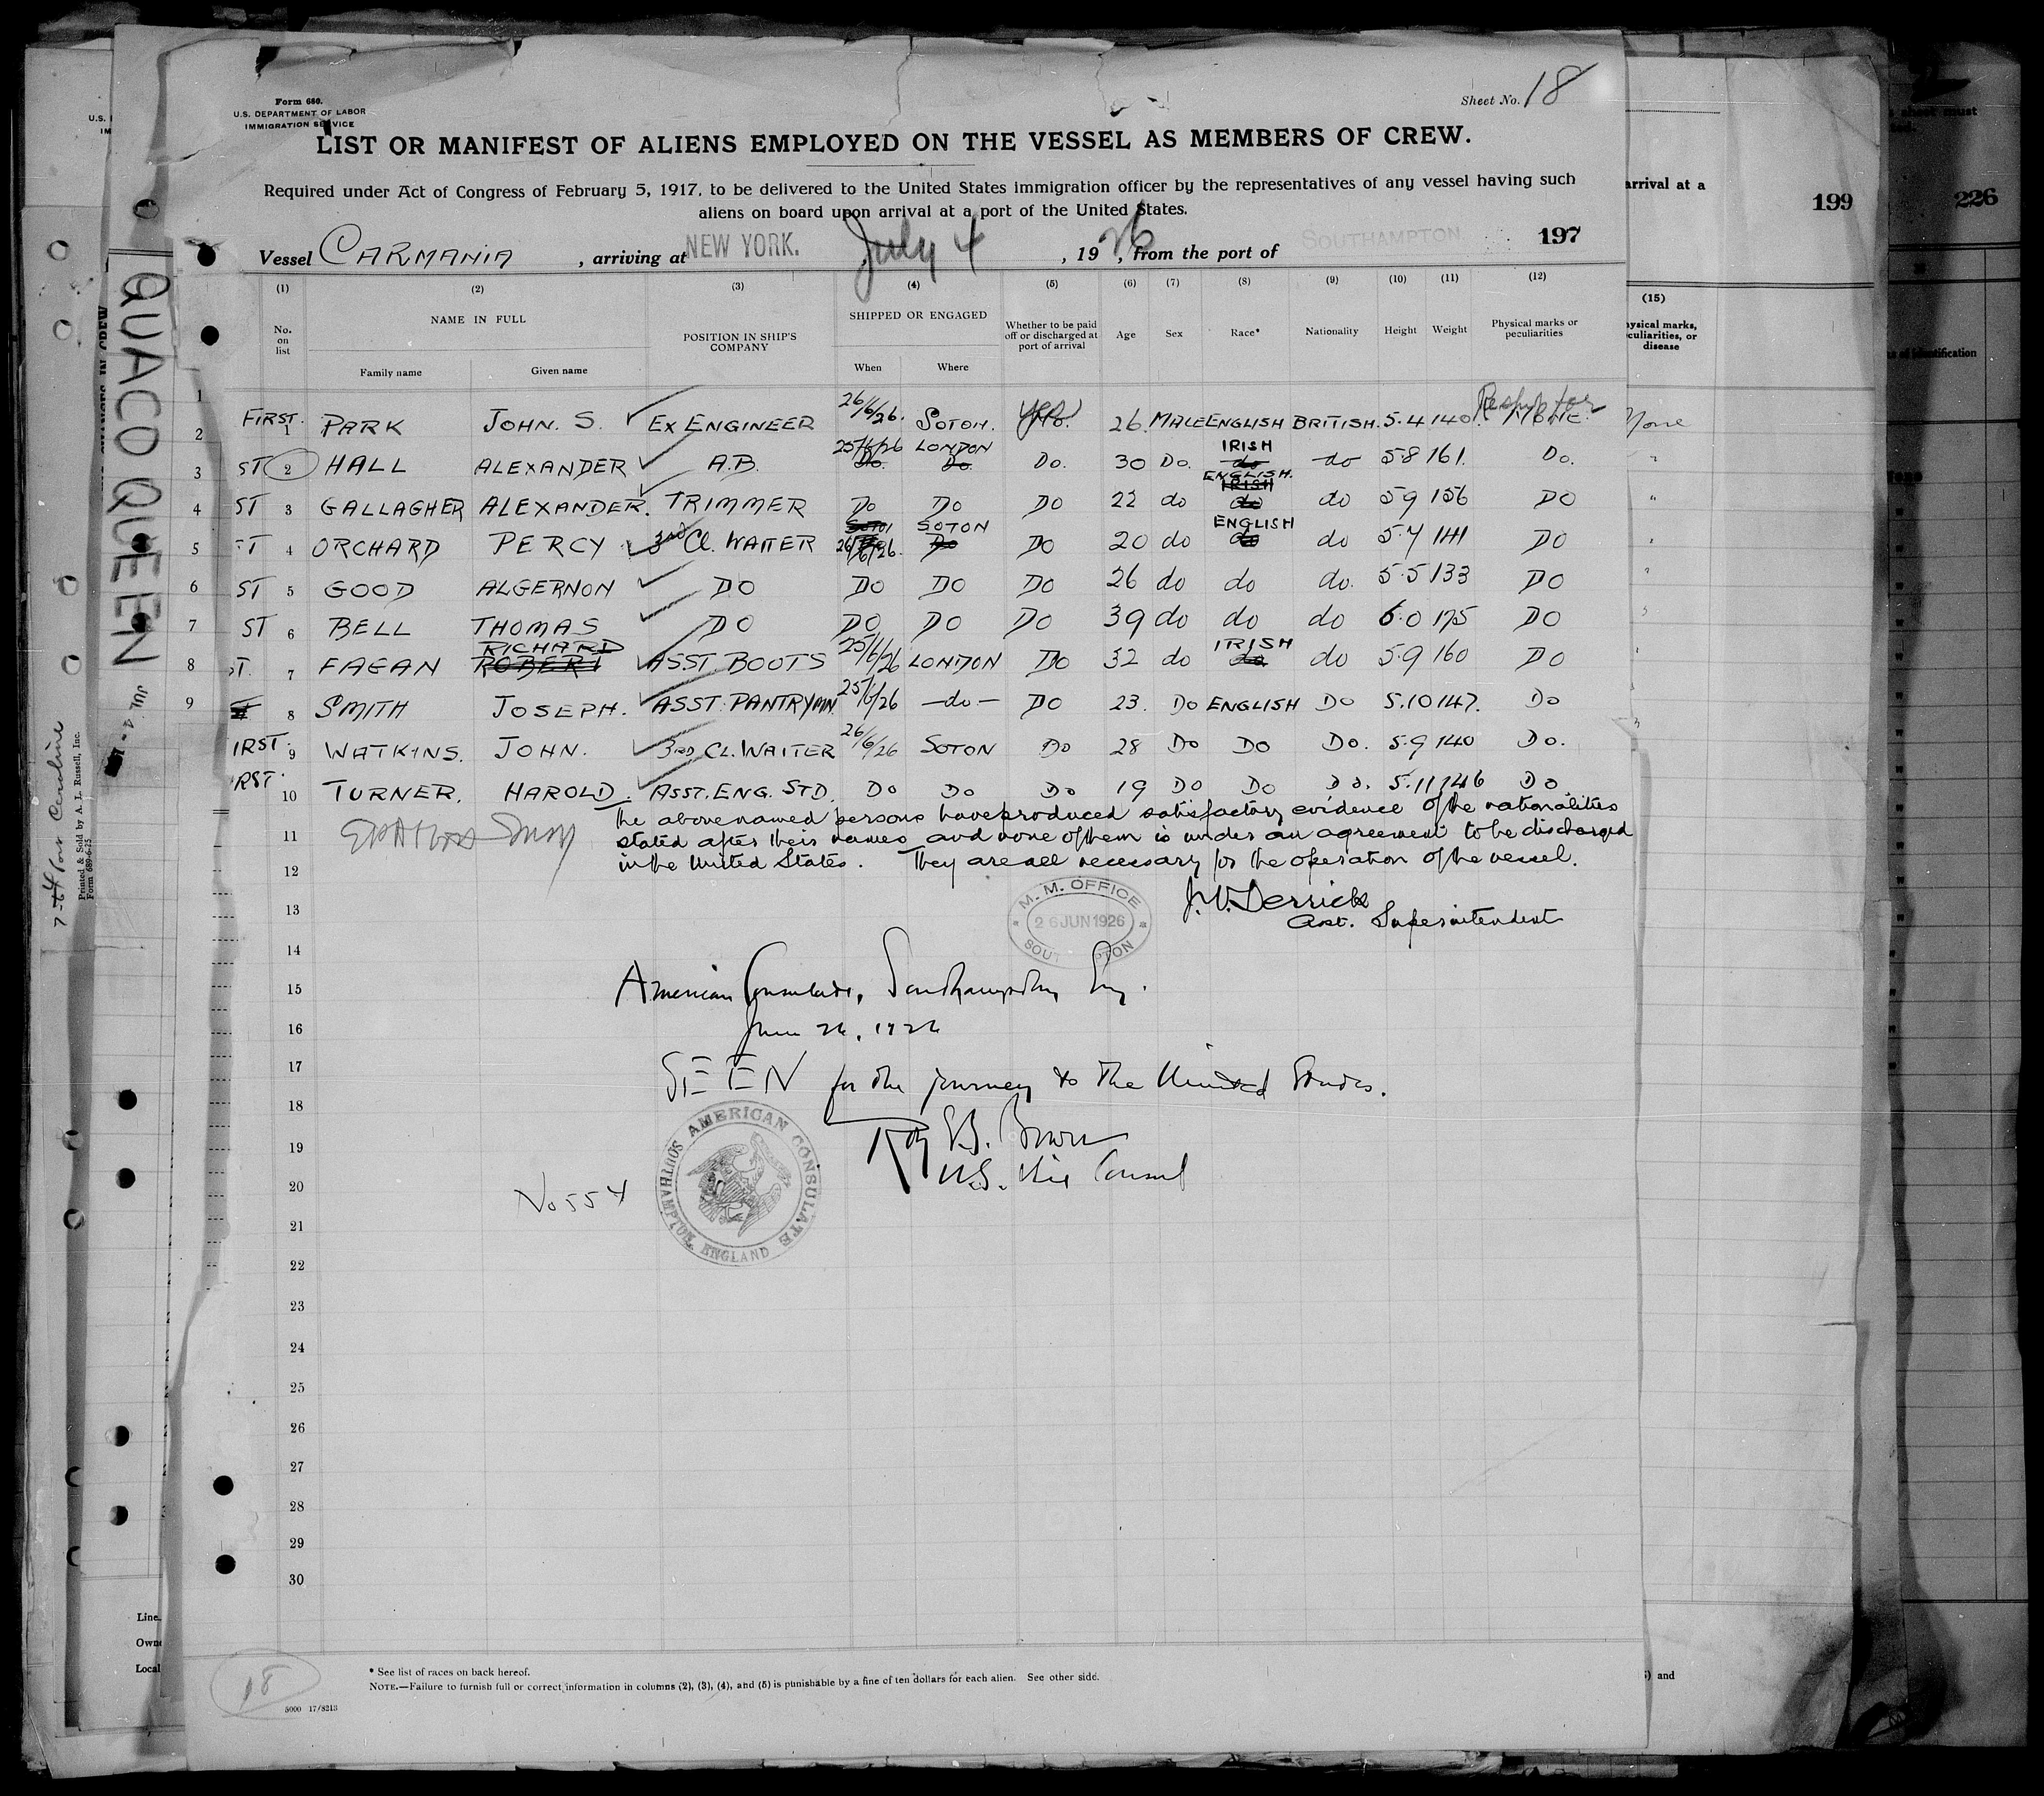 Form 680.
U.S. DEPARTMENT OF LABOR
IMMIGRATION SERVICE
Sheet No. 18
LIST OR MANIFEST OF ALIENS EMPLOYED ON THE VESSEL AS MEMBERS OF CREW.
Required under Act of Congress of February 5, 1917, to be delivered to the United States immigration officer by the representatives of any vessel having such
aliens on board upon arrival at a port of the United States.
Vessel CARMANIA, arriving at NEW YORK. July 4, 1926, from the port of SOUTHAMPTON 197
(1) (2) (3) (4) (5) (6) (7) (8) (9) (10) (11) (12)
No. on list NAME IN FULL POSITION IN SHIP'S COMPANY SHIPPED OR ENGAGED Whether to be paid off or discharged at port of arrival Age Sex Race* Nationality Height Weight Physical marks or peculiarities
Family name Given name When Where
FIRST. 1 PARK JOHN. S. EX ENGINEER 26/6/26. SOTON. 26. MALE ENGLISH BRITISH. 5.4 140. NONE.
ST 2 HALL ALEXANDER A.B. 25/6/26 LONDON Do. 30 Do. IRISH do 5.8 161. Do.
ST 3 GALLAGHER ALEXANDER. TRIMMER Do Do Do 22 do ENGLISH. do 5.9 156 Do
ST 4 ORCHARD PERCY 3rd Cl. WAITER 26/6/26. SOTON Do 20 do ENGLISH do 5.7 141 Do
ST 5 GOOD ALGERNON DO DO DO DO 26 do do do. 5.5 133 DO
ST 6 BELL THOMAS DO DO DO DO 39 do do do 6.0 175 DO
ST. 7 FAGAN RICHARD ROBERT ASST. BOOTS 25/6/26 LONDON Do 32 do IRISH do 5.9 160 DO
8 SMITH JOSEPH. ASST. PANTRYMN. 25/6/26 —do— DO 23. Do ENGLISH Do 5.10 147. Do
IRST. 9 WATKINS. JOHN. 3RD CL. WAITER 26/6/26 SOTON Do 28 Do Do Do. 5.9 140 Do.
RST. 10 TURNER. HAROLD. ASST. ENG. STD. Do Do Do 19 Do Do Do. 5.11 146 Do
The above named persons have produced satisfactory evidence of the nationalities
stated after their names and none of them is under an agreement to be discharged
in the United States. They are all necessary for the operation of the vessel.
J.W. Derrick
Asst. Superintendent
M. M. OFFICE
26 JUN 1926
American Consulate, Southampton, Eng.
June 26, 1926
SEEN for the journey to the United States.
Roy E.B. Bower
U.S. Vice Consul
No 554
AMERICAN CONSULATE
SOUTHAMPTON, ENGLAND
1
2
3
4
5
6
7
8
9
11
12
13
14
15
16
17
18
19
20
21
22
23
24
25
26
27
28
29
30
18
* See list of races on back hereof.
NOTE.—Failure to furnish full or correct information in columns (2), (3), (4), and (5) is punishable by a fine of ten dollars for each alien. See other side.
5000 17/8213
QUACO QUEEN
Printed & Sold by A. L. Russell, Inc.
Form 689-6-25
Line
Local
arrival at a
199
(15)
None
226